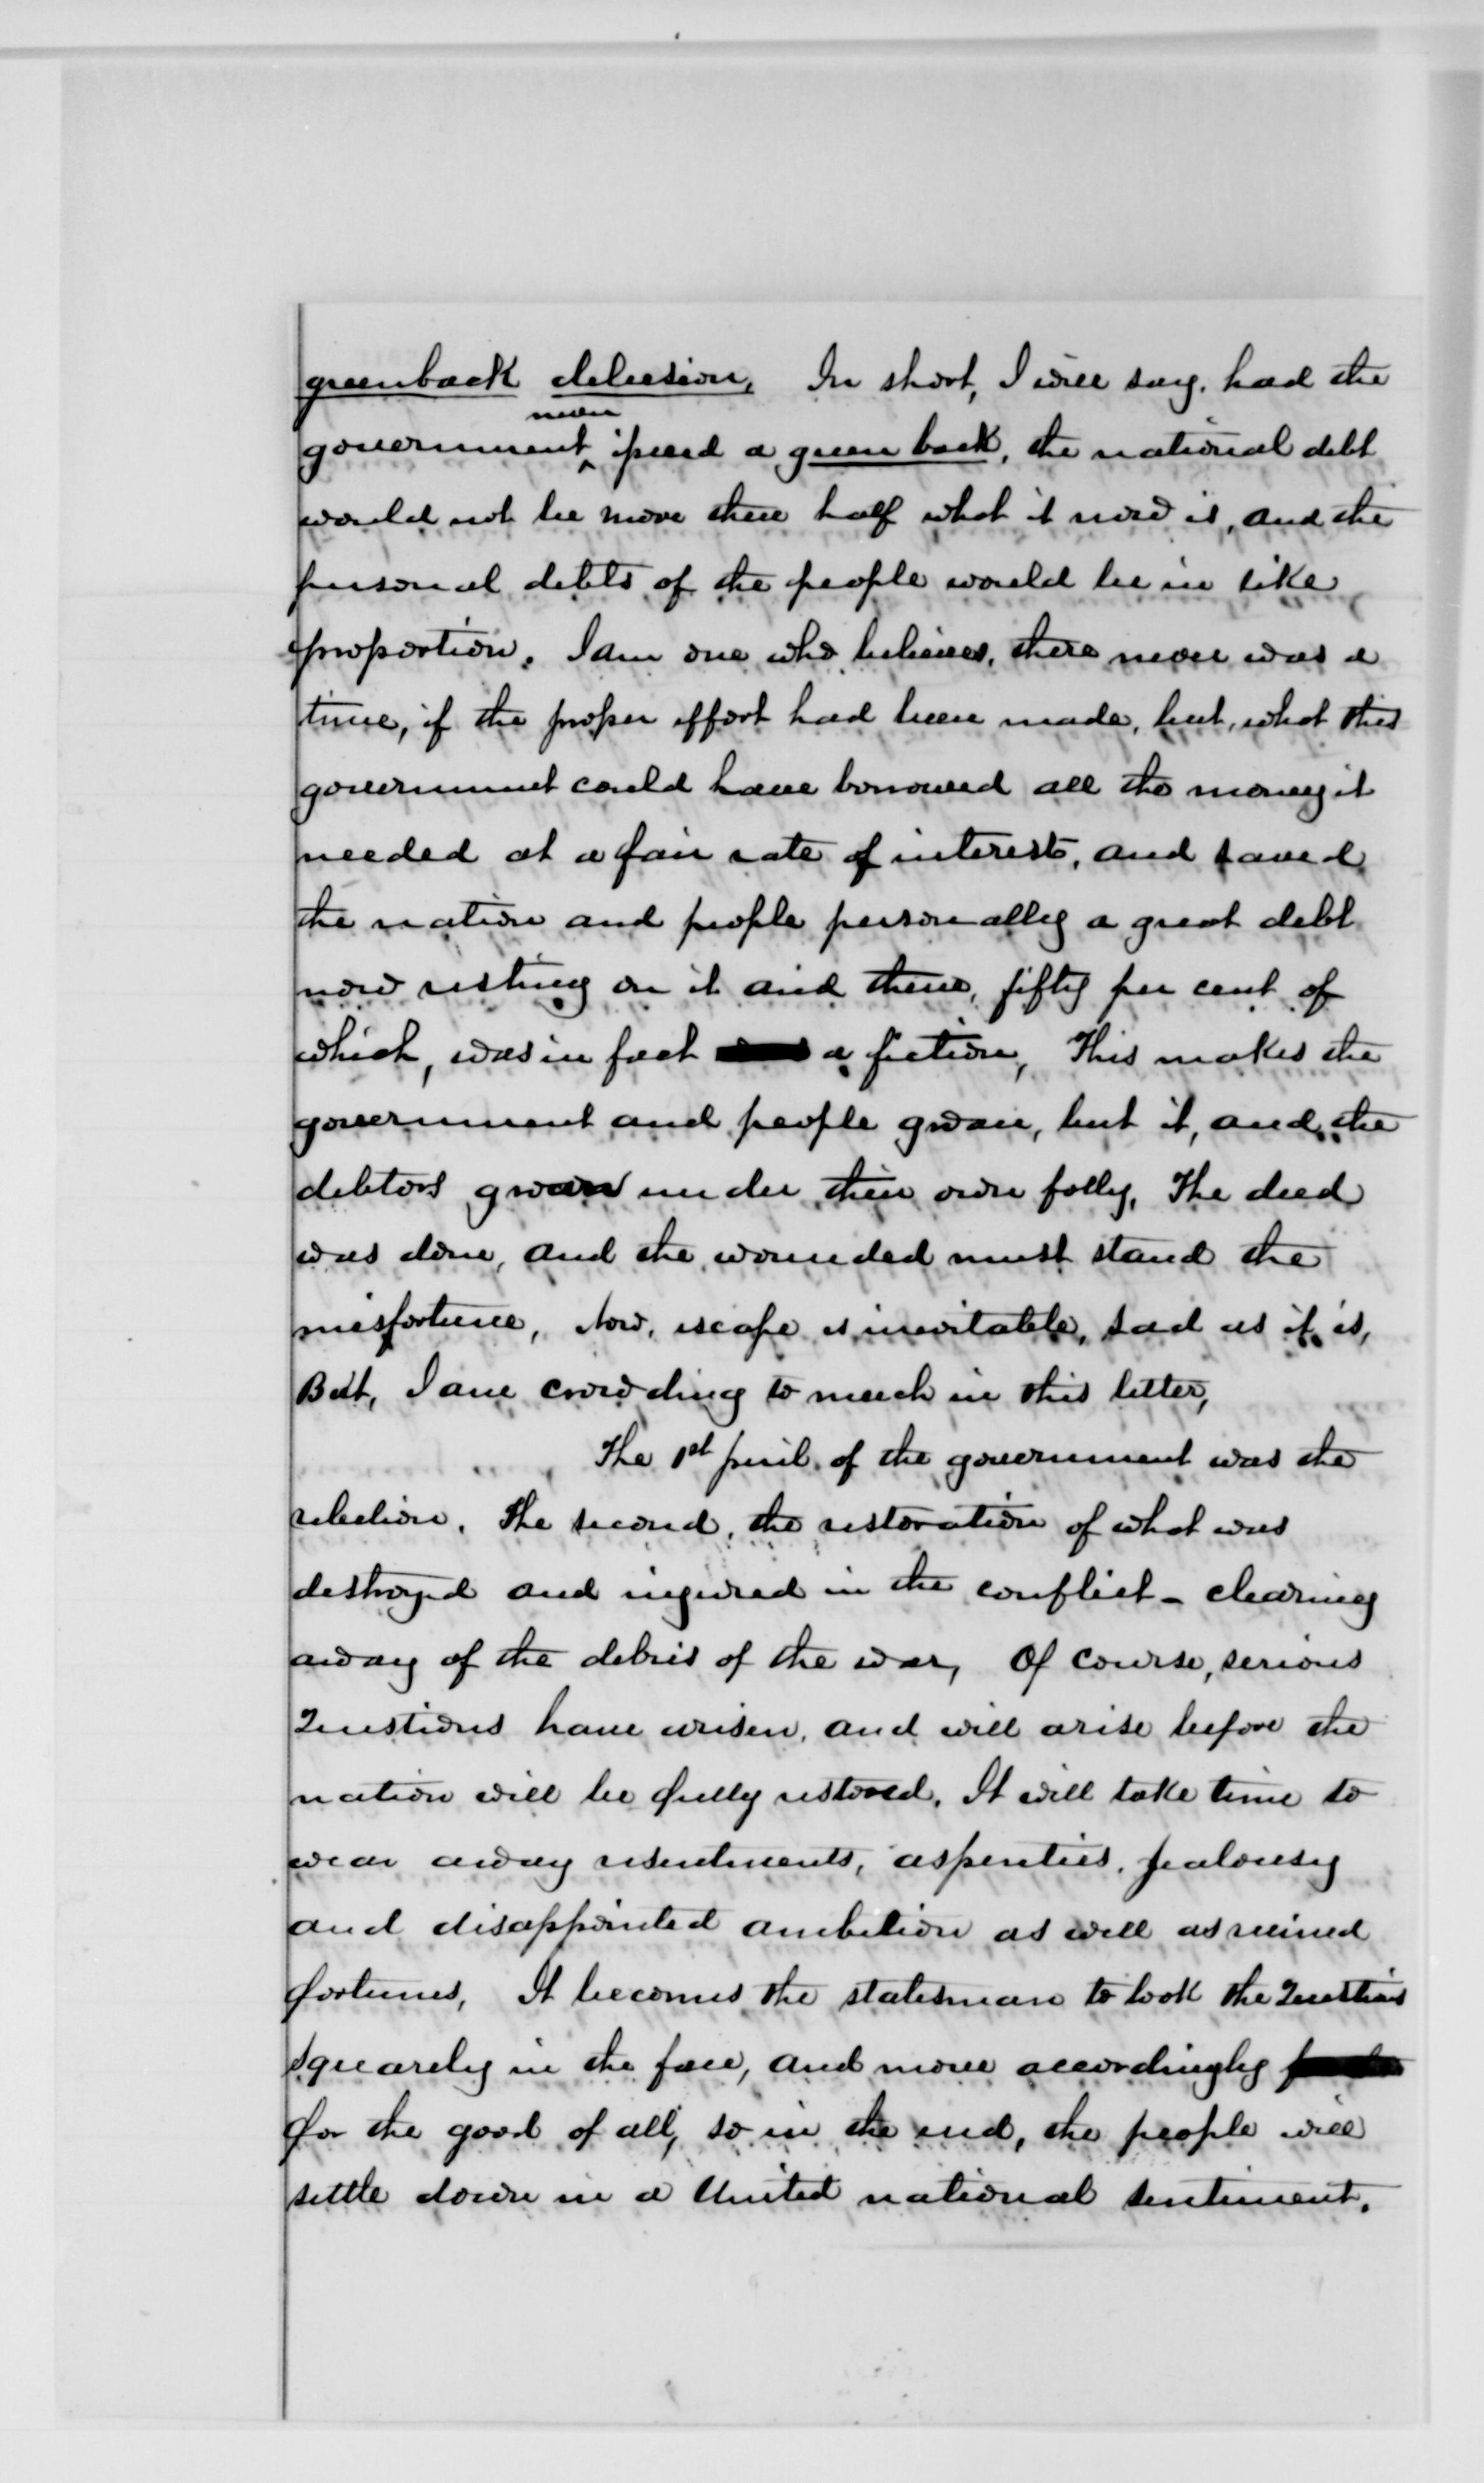 greenback delusion, In short, I will say, had the
never
government ^ issued a green back, the national debt
would not be more then half what it now is, and the
personal debts of the people would be in like
proportion. I am one who believes, there never was a
time, if the proper effort had been made, but, what this
government could have borrowed all the money it
needed at a fair rate of interest, and saved
the nation and people personally a great debt
now resting on it and them, fifty per cent of
which, was in fact a fiction, This makes the
government and people groan, but it, and the
debtors groan under their own folly, The deed
was done, and the wounded must stand the
misfortune, Now, escape is inevitable, sad as it is,
But, I am crowding to much in this letter,
The 1st peril of the government was the
rebelion. The second, the restoration of what was
destroyed and injured in the conflict - clearing
away of the debris of the war, Of course, serious
questions have arisen, and will arise before the
nation will be fully restored. It will take time to
wear away resentments, asperities, jealousy
and disappointed ambition as well as ruined
fortunes, It becomes the statesman to look the questions
squarely in the face, and move accordingly
for the good of all, so in the end, the people will
settle down in a United national sentiment.